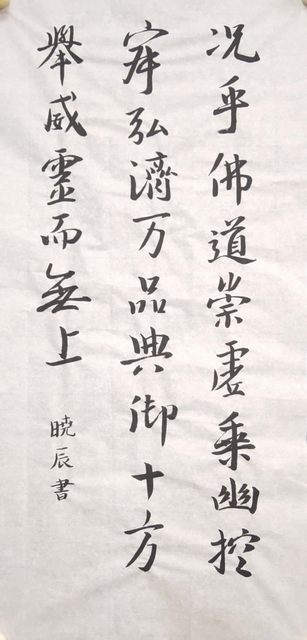 况乎佛道崇虚乘幽控
寂弘济万品典御十方
举威灵而无上
晓辰书